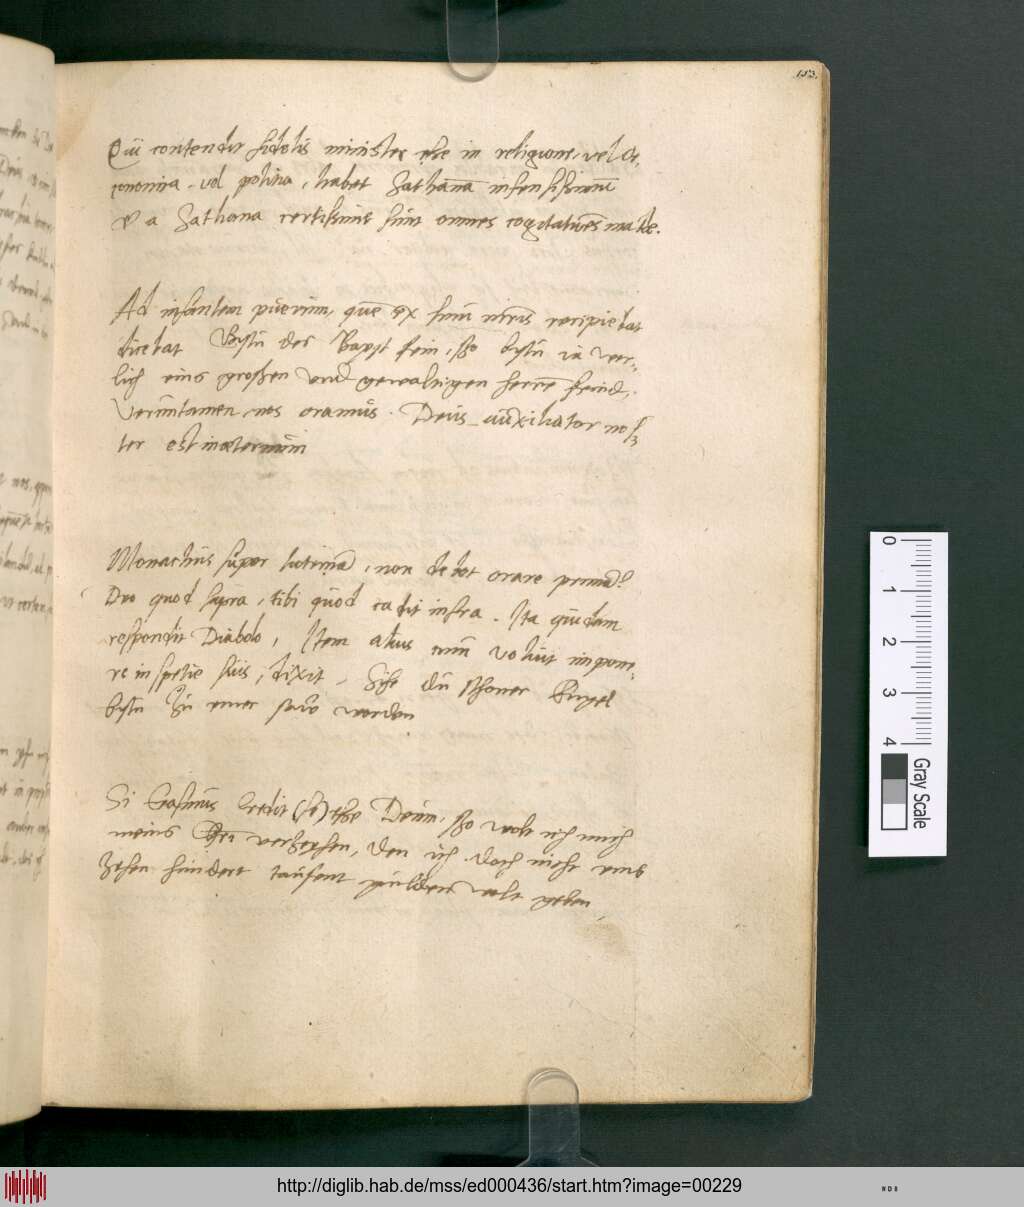 153.
Qui contendit fidelis minister esse in religione, vel oe,
conomia. vel politia, habet Sathanā infensissimū
& a Sathana certissime sunt omnes cogitationēs malae.
Ad infantem puerum, quē ex sinu mr̄is recipiebat
dicebat Bystu des Bapst fein, sso bystu ia wer,
lich eins grossen vnd gewaltigen herrē feind,.
Veruntamen nos oramus. Deus auxiliator nos
ter est in aeternum
Monachus super latrinā, non debet orare primā?
Deo quod supra, tibi quod cadit infra. Ita quidam
respondit Diabolo, Item alius cum voluit impone,
re in specie suis, dixit, Sihe du schoner Engel
bystu zu einer saw worden
Si Erasmus credit (se) esse Deum, sso wolt ich mich
meins verzeyhen, den ich doch nicht vmb
Zehen hundert tausent gulden wolt geben,
0
1
2
3
4
Gray Scale
http://diglib.hab.de/mss/ed000436/start.htm?image=00229